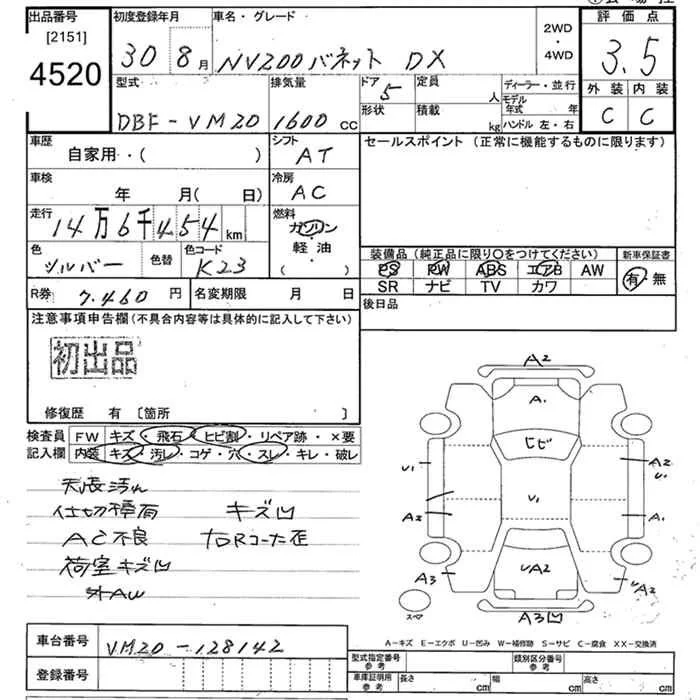 出品番号
[2151]
4520
初度登録年月
30 8月
車名・グレード
NV200バネット DX
2WD
・
4WD
評価点
3.5
外装 内装
C C
型式
DBF-VM20
排気量
1600 CC
ドア 5
形状
定員 人
積載 kg
ディーラー・並行
モデル年式 年
ハンドル 左・右
車歴
自家用・( )
シフト
AT
セールスポイント (正常に機能するものに限ります)
車検
年 月( 日)
冷房
AC
走行
14万6千454 km
燃料
ガソリン
軽油
( )
色
シルバー
色替
色コード
K23
装備品 (純正品に限り○をつけてください)
PS PW ABS エアB AW
SR ナビ TV カワ
新車保証書
有・無
R券 7,460 円
名変期限 月 日
後日品
注意事項申告欄(不具合内容等は具体的に記入して下さい)
初出品
修復歴 有 [箇所 ]
検査員記入欄
FW キズ・飛石・ヒビ割・リペア跡・×要
内装 キズ・汚レ・コゲ・穴・スレ・キレ・破レ
天張汚れ
仕切 キズ凹
AC不良
荷室キズ凹
外AW
A2
A1
ヒビ
U1
A2
U1
A2
V1
A1
A3
UA2
UA2
A3凹
スペア
A-キズ E-エクボ U-凹み W-補修跡 S-サビ C-腐食 XX-交換済
車台番号 VM20-128142
登録番号
型式指定番号
参考
類別区分番号
参考
車庫証明用
参考
長さ cm
幅 cm
高さ cm